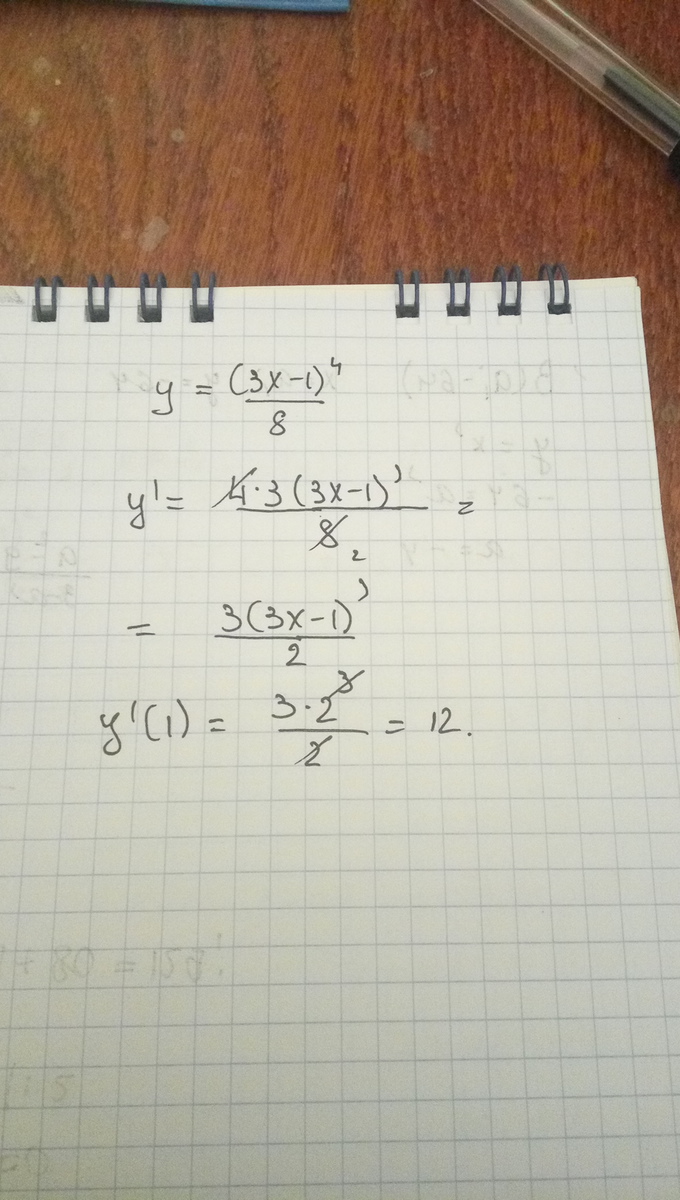 y = (3x-1)^4 / 8
y' = 4·3(3x-1)^3 / 8 2 =
= 3(3x-1)^3 / 2
y'(1) = 3·2^3 / 2 = 12.